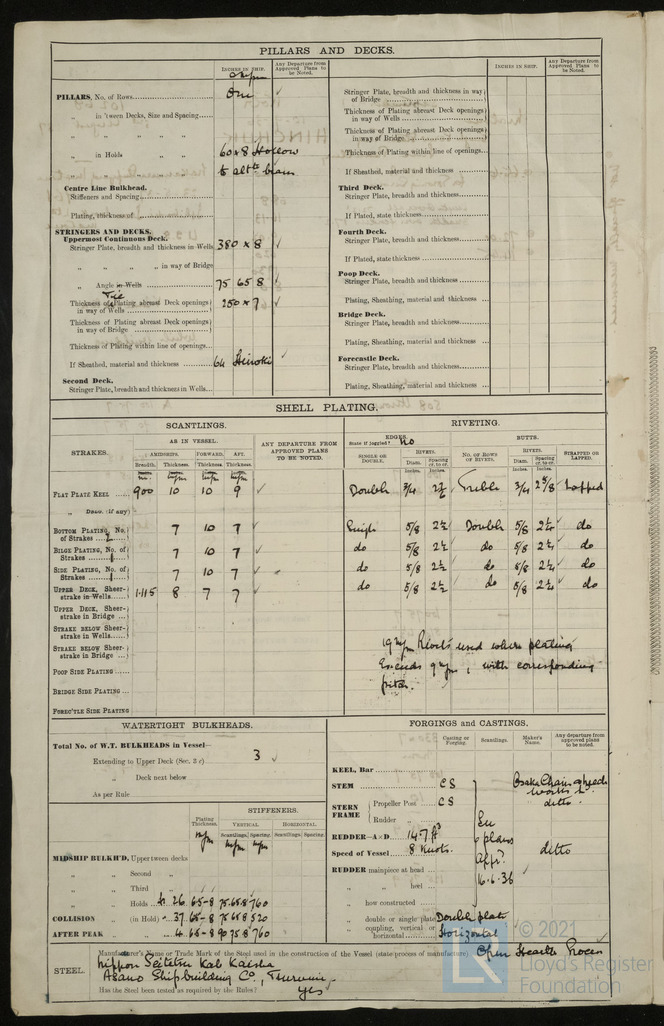 PILLARS AND DECKS.
INCHES IN SHIP.
Any Departure from Approved Plans to be Noted.
PILLARS, No. of Rows
One
„ in 'tween Decks, Size and Spacing
„ „ „ „
„ in Holds
60 x 8 Hollow
to altte beams
Centre Line Bulkhead.
Stiffeners and Spacing
Plating, thickness of
STRINGERS AND DECKS.
Uppermost Continuous Deck.
Stringer Plate, breadth and thickness in Wells
380 x 8
„ „ „ „ in way of Bridge
„ Angle in Wells
75 65 8
Tie
Thickness of Plating abreast Deck openings in way of Wells
250 x 7
Thickness of Plating abreast Deck openings in way of Bridge
Thickness of Plating within line of openings
If Sheathed, material and thickness
64 Hinoki
Second Deck.
Stringer Plate, breadth and thickness in Wells
INCHES IN SHIP.
Any Departure from Approved Plans to be Noted.
Stringer Plate, breadth and thickness in way of Bridge
Thickness of Plating abreast Deck openings in way of Wells
Thickness of Plating abreast Deck openings in way of Bridge
Thickness of Plating within line of openings
If Sheathed, material and thickness
Third Deck.
Stringer Plate, breadth and thickness
If Plated, state thickness
Fourth Deck.
Stringer Plate, breadth and thickness
If Plated, state thickness
Poop Deck.
Stringer Plate, breadth and thickness
Plating, Sheathing, material and thickness
Bridge Deck.
Stringer Plate, breadth and thickness
Plating, Sheathing, material and thickness
Forecastle Deck.
Stringer Plate, breadth and thickness
Plating, Sheathing, material and thickness
SHELL PLATING.
SCANTLINGS.
RIVETING.
STRAKES.
AS IN VESSEL.
AMIDSHIPS. FORWARD. AFT.
Breadth. Thickness. Thickness. Thickness.
ANY DEPARTURE FROM APPROVED PLANS TO BE NOTED.
EDGES.
State if joggled? No
SINGLE OR DOUBLE.
RIVETS.
Diam. Spacing cr. to cr.
BUTTS.
No. OF ROWS OF RIVETS.
RIVETS.
Diam. Spacing cr. to cr.
STRAPPED OR LAPPED.
FLAT PLATE KEEL 900 10 10 9 Double 3/4 Treble 3/4 2 5/8 Lapped
„ DBLG. (if any)
BOTTOM PLATING, No. of Strakes 2 7 10 7 Single 5/8 2 1/2 Double 5/8 2 1/4 do
BILGE PLATING, No. of Strakes 1 7 10 7 do 5/8 2 1/2 do 5/8 2 1/4 do
SIDE PLATING, No. of Strakes 1 7 10 7 do 5/8 2 1/2 do 5/8 2 1/4 do
UPPER DECK, Sheer-strake in Wells 1115 8 7 7 do 5/8 2 1/2 do 5/8 2 1/4 do
UPPER DECK, Sheer-strake in Bridge
STRAKE BELOW Sheer-strake in Wells
STRAKE BELOW Sheer-strake in Bridge
POOP SIDE PLATING
BRIDGE SIDE PLATING
FOREC'TLE SIDE PLATING
19 m/m Rivets used where plating
Exceeds 9 m/m, with corresponding
pitch.
WATERTIGHT BULKHEADS.
Total No. of W.T. BULKHEADS in Vessel—
Extending to Upper Deck (Sec. 3 c) 3
„ Deck next below
As per Rule
Plating Thickness.
STIFFENERS.
VERTICAL. HORIZONTAL.
Scantlings. Spacing. Scantlings. Spacing.
m/m m/m m/m
MIDSHIP BULKH'D, Upper tween decks
„ „ Second „
„ „ Third „
„ „ Holds 26 65-8 75 65 8 760
COLLISION „ (in Hold) 37 65-8 75 65 8 520
AFTER PEAK „ „ 65-8 90 75 8 760
FORGINGS and CASTINGS.
Casting or Forging.
Scantlings.
Maker's Name.
Any departure from approved plans to be noted.
KEEL, Bar
STEM CS
Osaka Chain &
STERN FRAME
Propeller Post CS
ditto
Rudder „
RUDDER—A×D 14.7 ft3
Speed of Vessel 8 Knots.
RUDDER mainpiece at head
„ „ heel
„ how constructed
plans
16.6.36
ditto
„ double or single plate Double plate
„ coupling, vertical or horizontal Horizontal
STEEL.
Manufacturer's Name or Trade Mark of the Steel used in the construction of the Vessel (state process of manufacture) Open Hearth Process
Nippon Seitetsu Kab Kaisha
Asano Shipbuilding Co., Tsurumi
Has the Steel been tested as required by the Rules? Yes
© 2021
LR
Lloyd's Register
Foundation